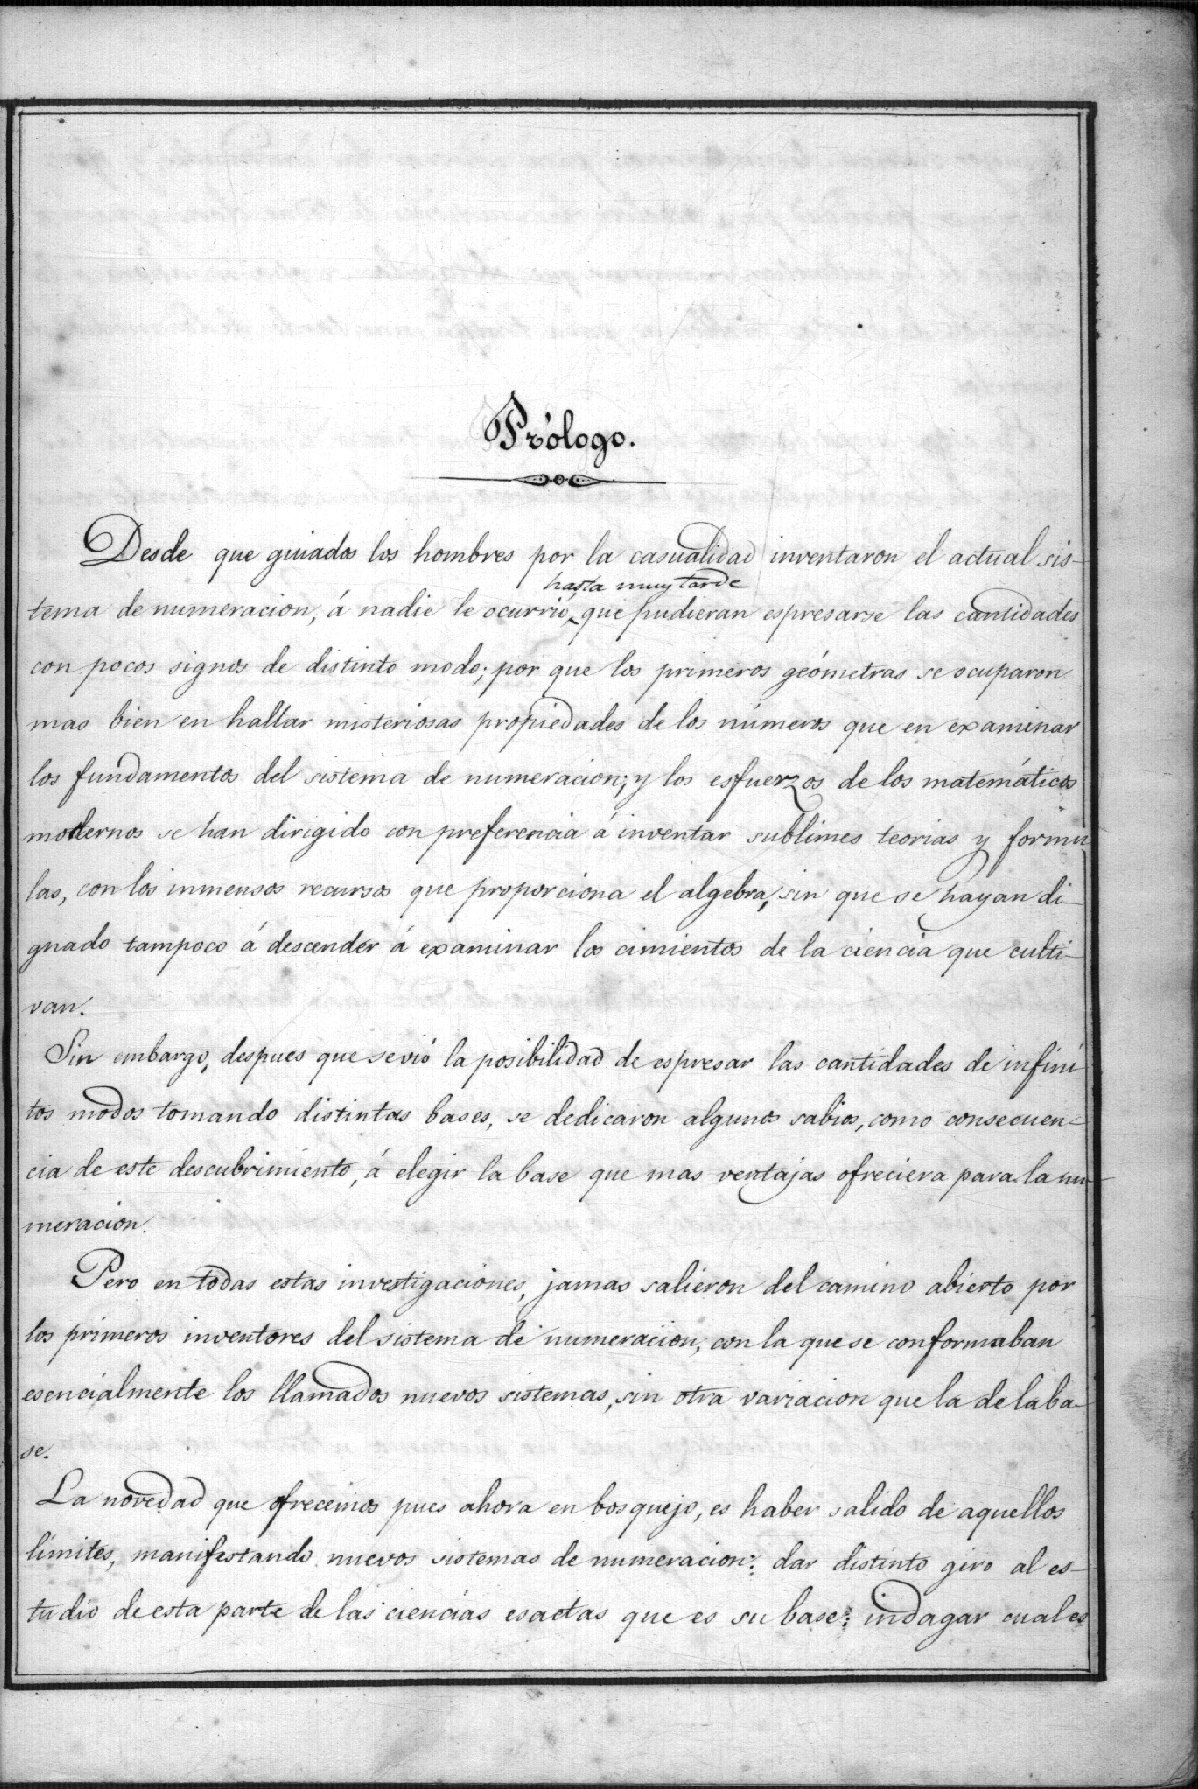 Prólogo.
Desde que guiados los hombres por la casualidad inventaron el actual sis-
hasta muy tarde
tema de numeracion, á nadie le ocurrió que pudieran espresarse las cantidades
con pocos signos de distinto modo; por que los primeros geómetras se ocuparon
mas bien en hallar misteriosas propiedades de los números que en examinar
los fundamentos del sistema de numeracion; y los esfuerzos de los matemáticos
modernos se han dirigido con preferencia á inventar sublimes teorias y formu
las, con los inmensos recursos que proporciona el algebra, sin que se hayan di-
gnado tampoco á descender á examinar los cimientos de la ciencia que culti-
van.
Sin embargo, despues que se vió la posibilidad de espresar las cantidades de infini
tos modos tomando distintas bases, se dedicaron algunos sabios, como consecuen-
cia de este descubrimiento, á elegir la base que mas ventajas ofreciera para la nu-
meracion.
Pero en todas estas investigaciones, jamas salieron del camino abierto por
los primeros inventores del sistema de numeracion, con la que se conformaban
esencialmente los llamados nuevos sistemas, sin otra variacion que la de la ba-
se.
La novedad que ofrecemos pues ahora en bosquejo, es haber salido de aquellos
límites, manifestando nuevos sistemas de numeracion: dar distinto giro al es-
tudio de esta parte de las ciencias esactas que es su base: indagar cual es